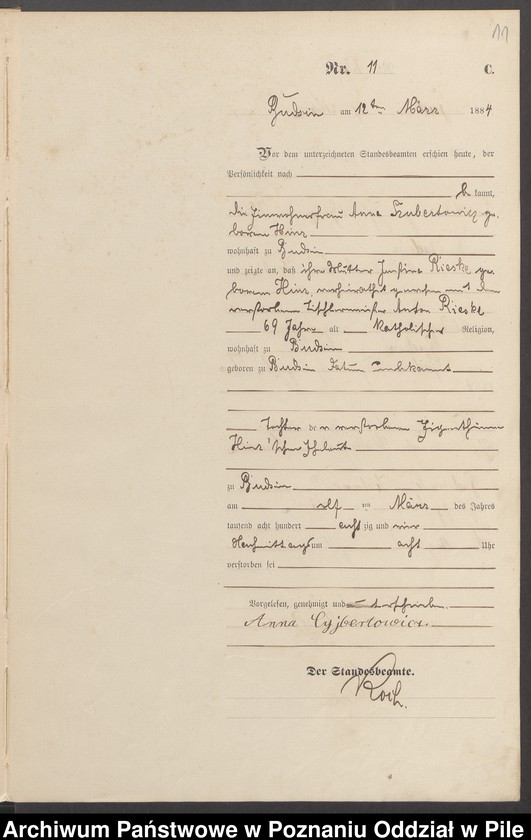 11
Nr. 11 C.
Budsin am 12ten März 1884
Vor dem unterzeichneten Standesbeamten erschien heute, der
Persönlichkeit nach
be kannt,
die Einwohnerfrau Anna ge-
borene Hinz
wohnhaft zu Budsin
und zeigte an, daß ihre Mutter Justine Rieske ge-
borene Hinz, verheirathet gewesen mit dem
verstorbenen Tischlermeister Anton Rieske
69 Jahre alt katholischer Religion,
wohnhaft zu Budsin
geboren zu Budsin Datum unbekannt
Tochter der verstorbenen Eigenthümer
Hinz'schen Eheleute
zu Budsin
am elf ten März des Jahres
tausend acht hundert acht zig und vier
Nachmittags um acht Uhr
verstorben sei
Vorgelesen, genehmigt und unterschrieben.
Anna Cyjbertowicz
Der Standesbeamte.
Koch.
Archiwum Państwowe w Poznaniu Oddział w Pile